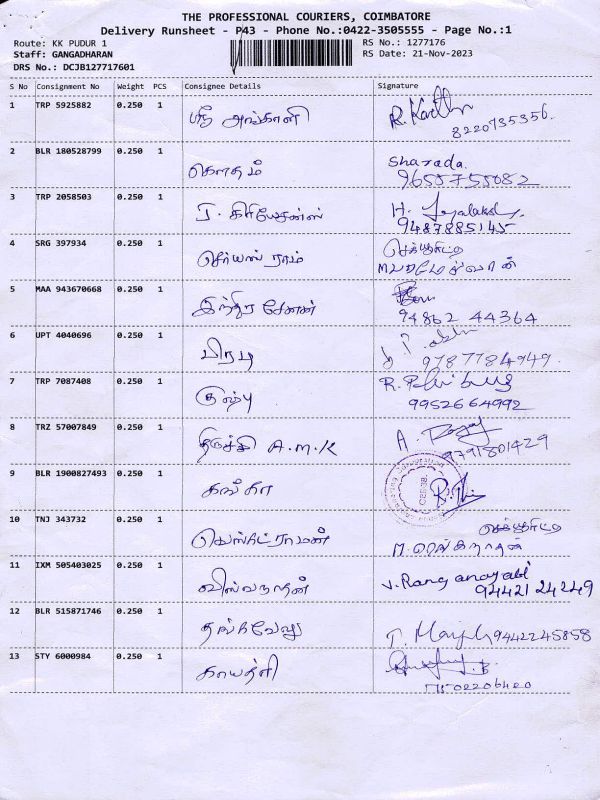 THE PROFESSIONAL COURIERS, COIMBATORE
Delivery Runsheet - P43 - Phone No.:0422-3505555 - Page No.:1
Route: KK PUDUR 1 RS No.: 1277176
Staff: GANGADHARAN RS Date: 21-Nov-2023
DRS No.: DCJB127717601
S No Consignment No Weight PCS Consignee Details Signature
1 TRP 5925882 0.250 1 ஸ்ரீ அங்காளி
8220735356
2 BLR 180528799 0.250 1 கௌதம் Sharada
9655755082
3 TRP 2058503 0.250 1
9487885145
4 SRG 397934 0.250 1 ராம்
5 MAA 943670668 0.250 1 இந்திர சேனன்
94862 44364
6 UPT 4040696 0.250 1
9787784949
7 TRP 7087408 0.250 1
9952664992
8 TRZ 57007849 0.250 1 திருச்சி A.M.K
9791801429
9 BLR 1900827493 0.250 1 கங்கா
10 TNJ 343732 0.250 1 வெங்கட்ராமன்
M. ரெங்கநாதன்
11 IXM 505403025 0.250 1 விஸ்வநாதன் V. Ranganayaki
94421 24249
12 BLR 515871746 0.250 1 தங்கவேலு 9442245858
13 STY 6000984 0.250 1 காயத்ரி